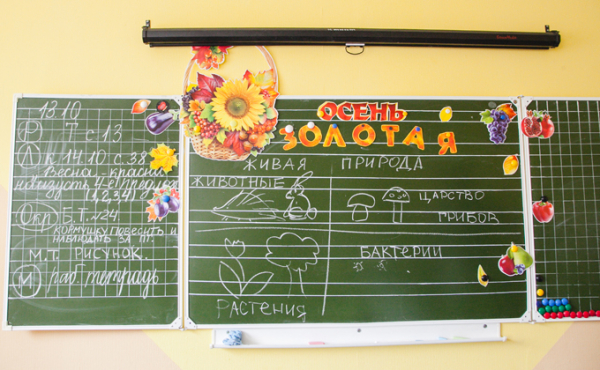 13.10
Р Т с 13
Л к 14.10 с.38
Весна - красна
наизусть 4-е предлож
(1,2,3,4)
Окр Б.Т. №24
КОРМУШКУ ПОВЕСИТЬ И
НАБЛЮДАТЬ ЗА ПТ.
М.Т. РИСУНОК.
М раб. тетрадь
ОСЕНЬ
ЗОЛОТАЯ
ЖИВАЯ ПРИРОДА
ЖИВОТНЫЕ
ЦАРСТВО
ГРИБОВ
БАКТЕРИИ
РАСТЕНИЯ